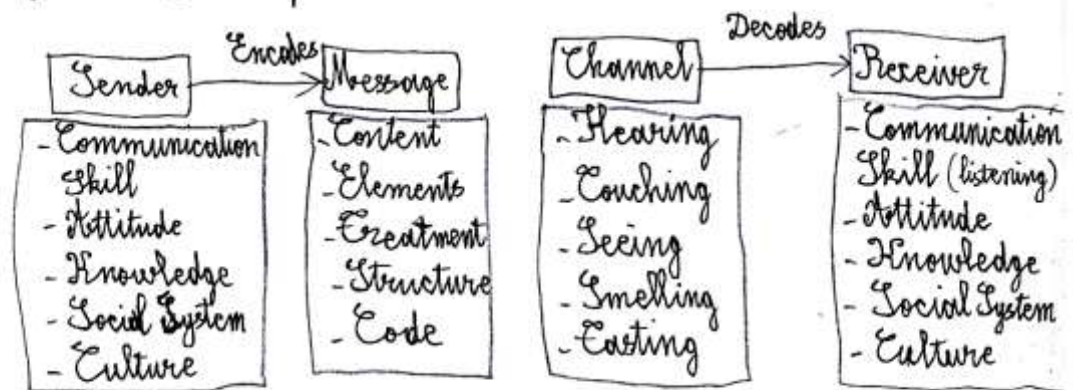 Encodes
Decodes
Sender
Message
Channel
Receiver
- Communication
Skill
- Attitude
- Knowledge
- Social System
- Culture
- Content
- Elements
- Treatment
- Structure
- Code
- Hearing
- Touching
- Seeing
- Smelling
- Tasting
- Communication
Skill (listening)
- Attitude
- Knowledge
- Social System
- Culture